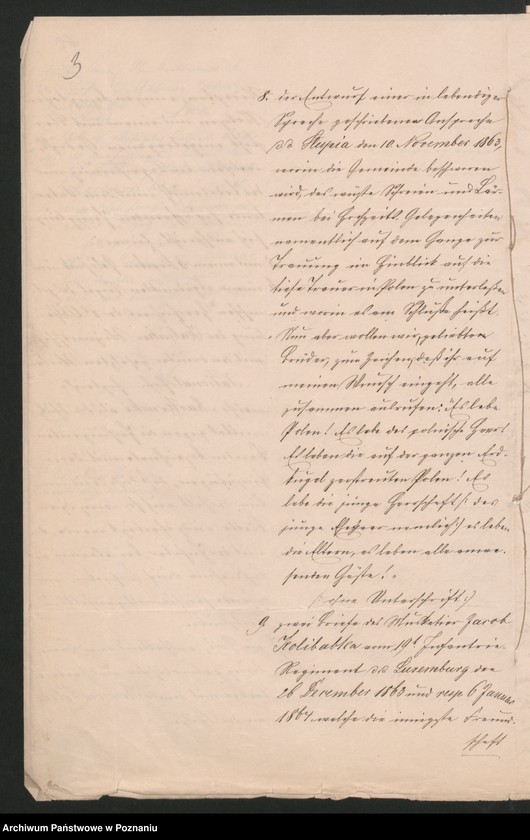 3
8. der Entwurf einer in lebendiger
Sprache geschriebenen Ansprache
dd Slupia den 10 November 1863,
worin die Gemeinde beschworen
wird, das wüste Schreien und Lär-
men bei Hochzeits-Gelegenheiten
namentlich auf dem Gange zur
Trauung im Hinblick auf die
tiefe Trauer in Polen zu unterlassen
und worin es am Schluße heißt
Nun aber wollen wir, geliebten
Brüder, zum Zeichen, daß ihr auf
meinen Wunsch eingeht, alle
zusammen ausrufen: "Es lebe
Polen! Es lebe das polnische Heer!
Es leben die auf der ganzen Erd-
kugel zerstreuten Polen! Es
lebe die junge Herrschaft /: das
junge nemlich :/ es leben
die Eltern, es leben alle anwe-
senden Gäste! "
/: ohne Unterschrift :/
9 zwei Briefe des Musketier Jacob
Kolibabka vom 19t Infanterie-
Regiment dd Luxemburg den
26 December 1863 und resp 6 Januar
1864 welche die innigste Freund-
schaft
Archiwum Państwowe w Poznaniu